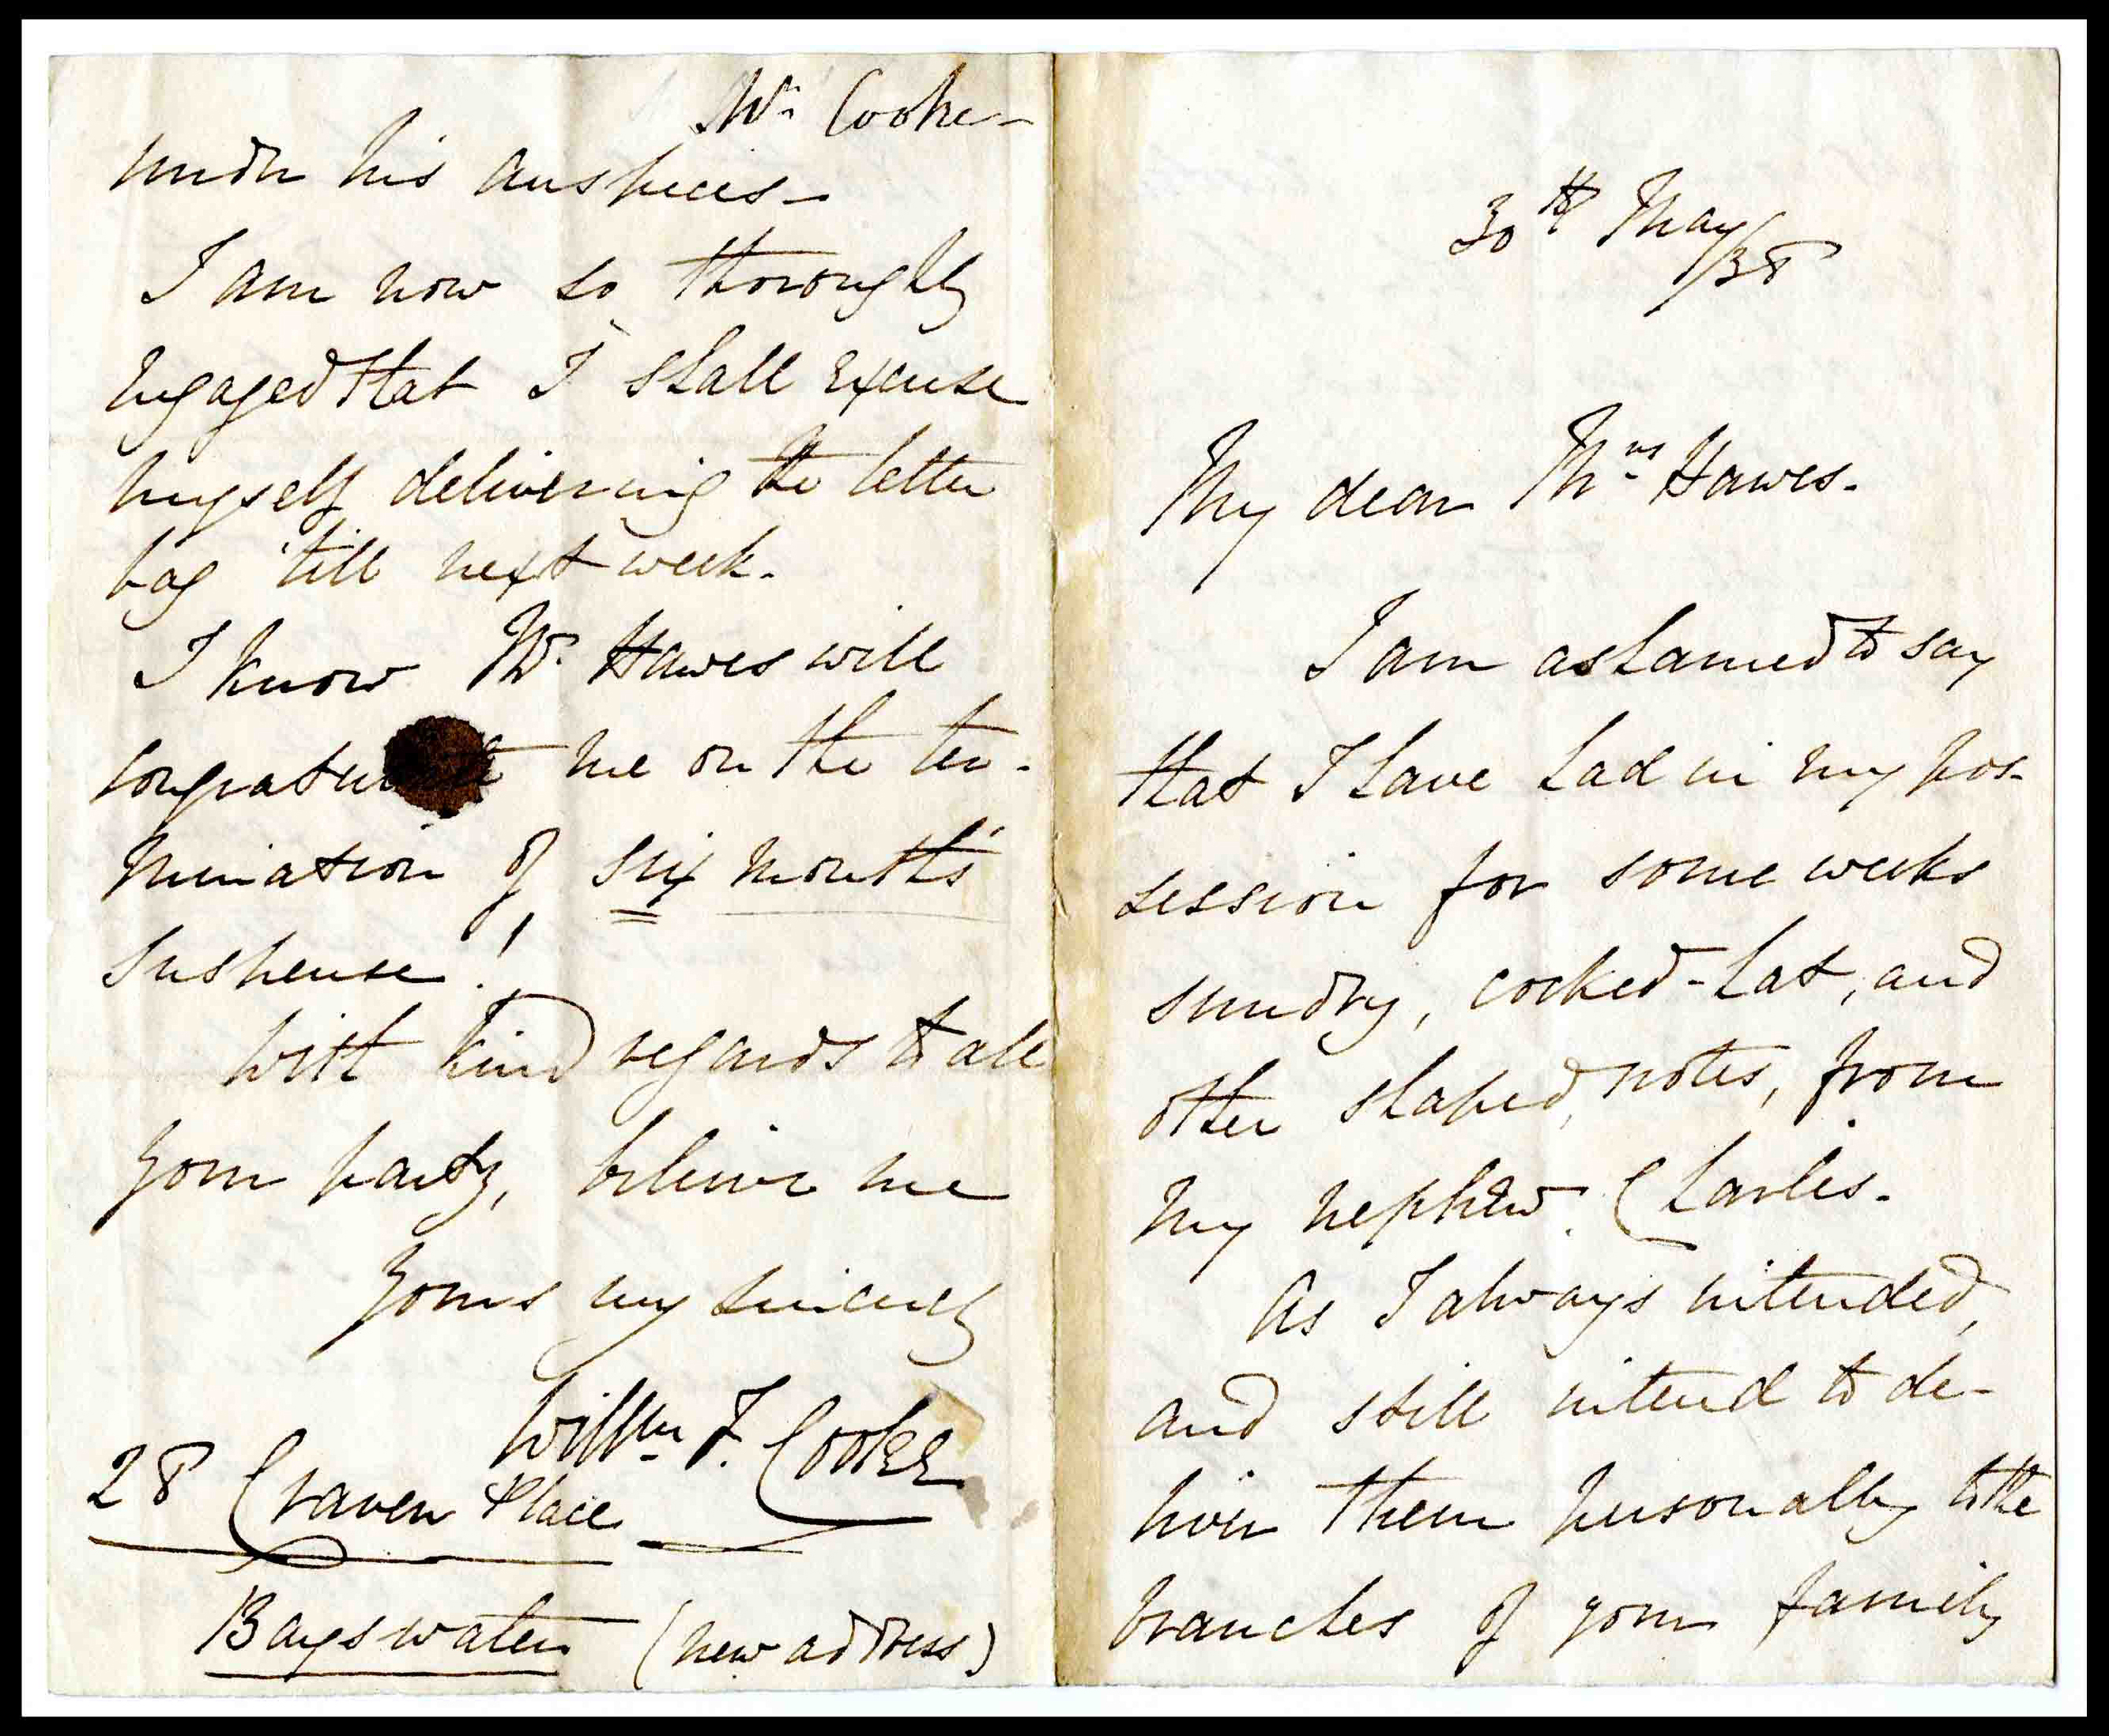 30th May/38
My dear Mrs Hawes.
I am ashamed to say
that I have had in my pos-
session for some weeks
sundry, cocked-hat, and
other shaped, notes, from
my nephew Charles.
As I always intended,
and still intend to de-
liver them personally to the
branches of your family
Mr Cooke-
under his auspices-
I am now so thoroughly
engaged that I shall excuse
myself delivering the letter
bag 'till next week.
I know Mr. Hawes will
congratulate me on the ter-
mination of six months'
suspense!
With kind regards to all
your party, believe me
Yours very sincerely
Willm. F. Cooke
28 Craven Place
Bayswater (new address)